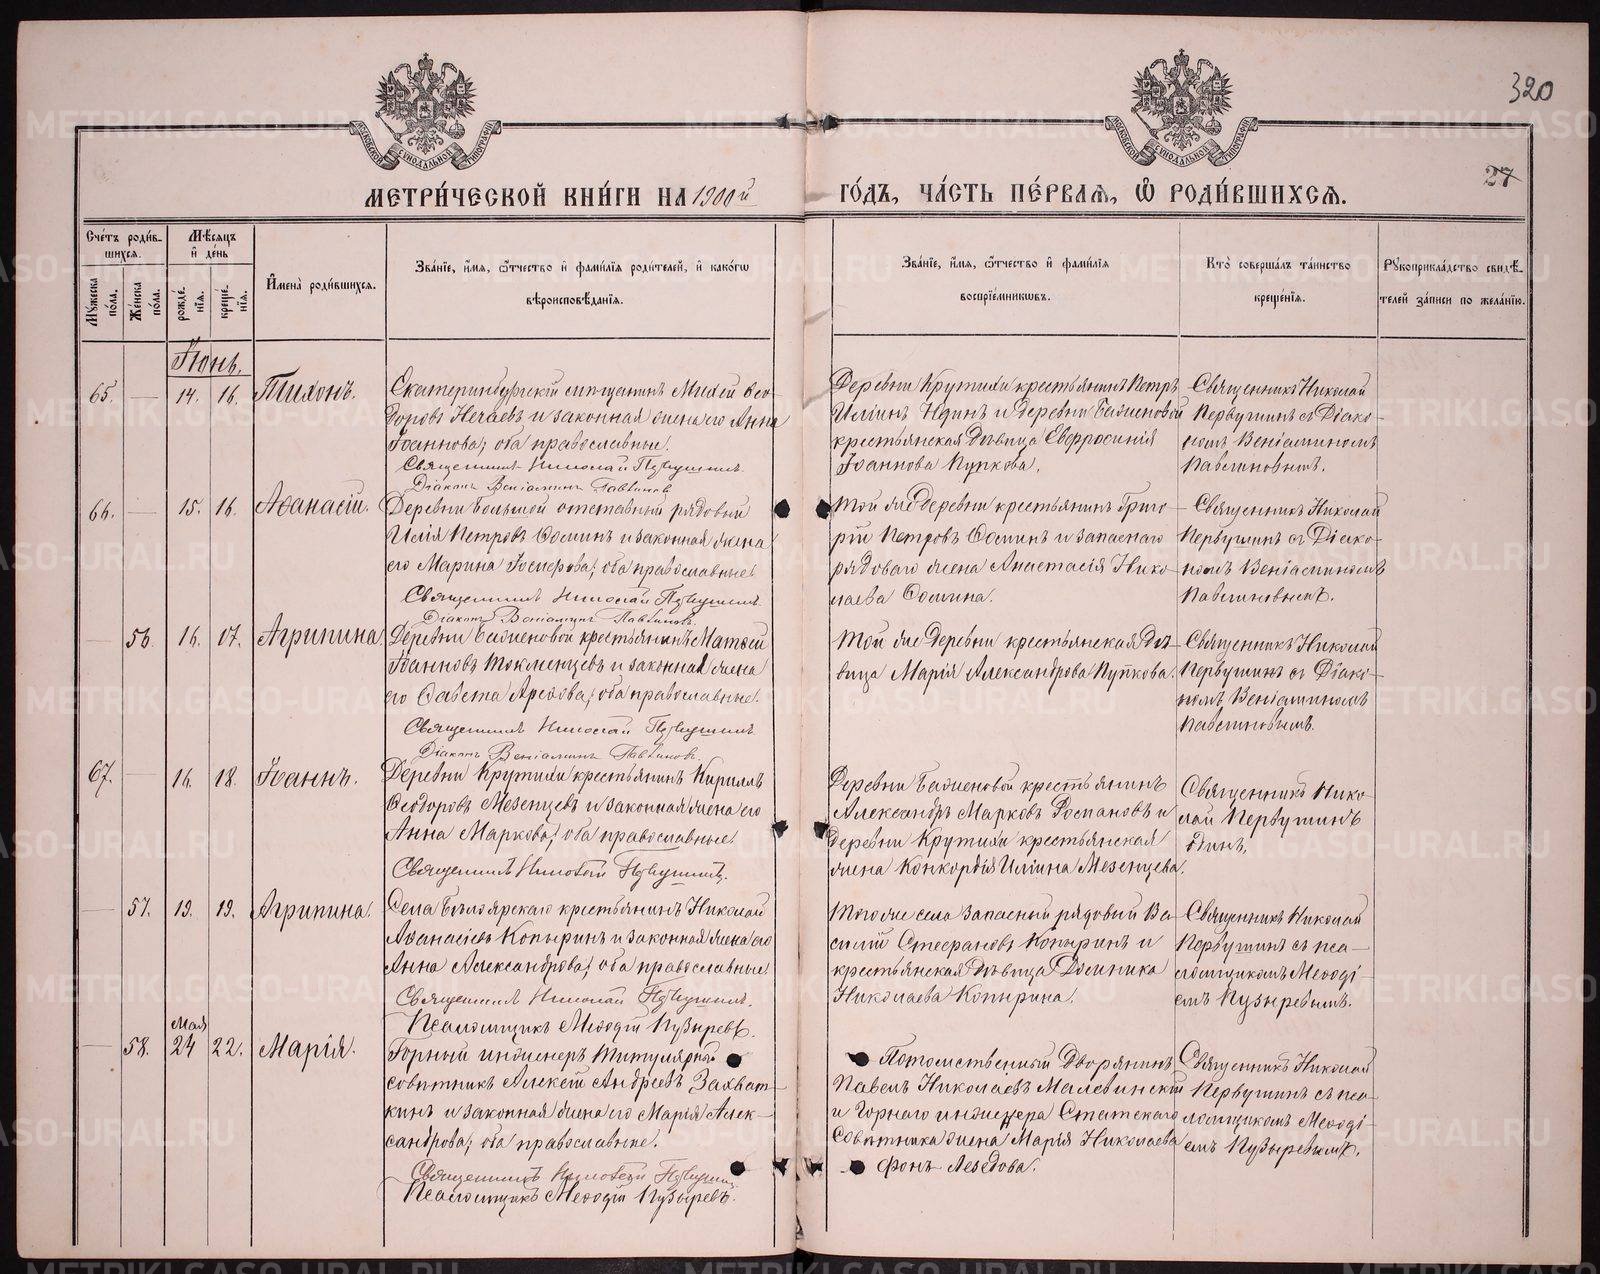 320
27
МЕТРИ́ЧЕСКОЙ КНИ́ГИ НА 1900й
ГО́ДЪ, ЧА́СТЬ ПЕ́РВАѦ, Ѡ҆ РОДИ́ВШИХСѦ.
Сче́тъ роди́в-
шихсѧ.
Мужеска по́ла.
Же́нска по́ла.
Мѣ́сѧцъ
и҆ де́нь
рожде́нїѧ.
креще́нїѧ.
И҆мена̀ роди́вшихсѧ.
Зва́нїе, и҆́мѧ, ѻ҆́тчество и҆ фами́лїѧ роди́телей, и҆ како́гѡ
вѣроисповѣ́данїѧ.
Зва́нїе, и҆́мѧ, ѻ҆́тчество и҆ фами́лїѧ
воспрїе́мникѡвъ.
Кто̀ соверша́лъ та́инство
креще́нїѧ.
Рукоприкла́дство свидѣ́-
телей за́писи по жела́нїю.
Іюнь.
65. — 14. 16. Тихонъ.
Екатеринбургскій мѣщанинъ Михей Ѳео-
доровъ Нечаевъ и законная жена его Анна
Іоаннова; оба православные.
Священникъ Николай Первушинъ.
Діаконъ Веніаминъ Павлиновъ
Деревни Крутихи крестьянинъ Петръ
Ильинъ Юдинъ и деревни Баженовой
крестьянская дѣвица Евфросинія
Іоаннова Пупкова.
Священникъ Николай
Первушинъ съ Діако-
номъ Веніаминомъ
Павлиновымъ.
66. — 15. 16. Аѳанасій.
Деревни Большой отставный рядовый
Илія Петровъ Ѳоминъ и законная жена
его Марина Іосифова; оба православные
Священникъ Николай Первушинъ.
Діаконъ Веніаминъ Павлиновъ.
Той же деревни крестьянинъ Григо-
рій Петровъ Ѳоминъ и запаснаго
рядоваго жена Анастасія Нико-
лаева Ѳомина.
Священникъ Николай
Первушинъ съ Діако-
номъ Веніаминомъ
Павлиновымъ.
— 56. 16. 17. Агрипина
Деревни Баженовой крестьянинъ Матѳей
Іоанновъ Токменцевъ и законная жена
его Савета Ареѳова; оба православные.
Священникъ Николай Первушинъ
Діаконъ Веніаминъ Павлиновъ.
Той же деревни крестьянская дѣ-
вица Марія Александрова Пупкова.
Священникъ Николай
Первушинъ съ Діако-
номъ Веніаминомъ
Павлиновымъ.
67. — 16. 18. Іоаннъ.
Деревни Крутихи крестьянинъ Кириллъ
Ѳеодоровъ Мезенцевъ и законная жена его
Анна Маркова; оба православные.
Священникъ Николай Первушинъ.
Деревни Баженовой крестьянинъ
Александръ Марковъ Роспановъ и
деревни Крутихи крестьянская
жена Конкордія Ильина Мезенцева.
Священникъ Нико-
лай Первушинъ
одинъ.
— 57. 19. 19. Агрипина.
Села Бѣлоярскаго крестьянинъ Николай
Аѳанасіевъ Копыринъ и законная жена его
Анна Александрова; оба православные
Священникъ Николай Первушинъ.
Псаломщикъ Меѳодій Пузыревъ.
Того же села запасный рядовый Ва-
силій Стефановъ Копыринъ и
крестьянская дѣвица Домника
Николаева Копырина.
Священникъ Николай
Первушинъ съ пса-
ломщикомъ Меѳоді-
емъ Пузыревымъ.
Мая
— 58. 24 22. Марія.
Горный инженеръ Титулярный
совѣтникъ Алексѣй Андреевъ Захват-
кинъ и законная жена его Марія Алек-
сандрова; оба православные.
Священникъ Николай Первушинъ
Псаломщикъ Меѳодій Пузыревъ.
Потомственный Дворянинъ
Павелъ Николаевъ Малевинскій
и Горнаго инженера Статскаго
Совѣтника жена Марія Николаева
фонъ-Лезедова.
Священникъ Николай
Первушинъ съ пса-
ломщикомъ Меѳоді-
емъ Пузыревымъ.